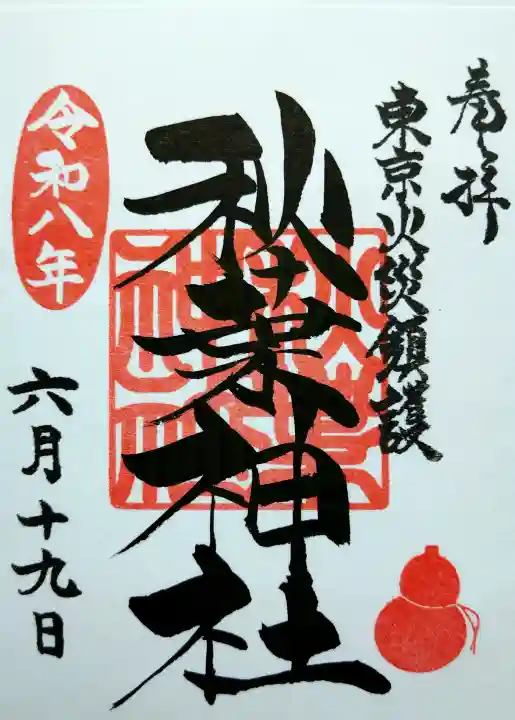 奉拝
東京火災鎮護
秋葉神社
令和八年
六月十九日